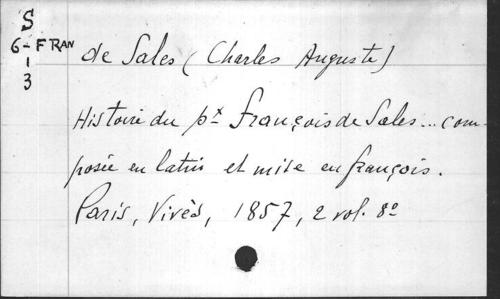 S
6-FRAN
-
3
de Sales (Charles Auguste)
Histoire du bx François de Sales... com-
posée en latin et mise en françois.
Paris, Vivès, 1857, 2 vol. 8°